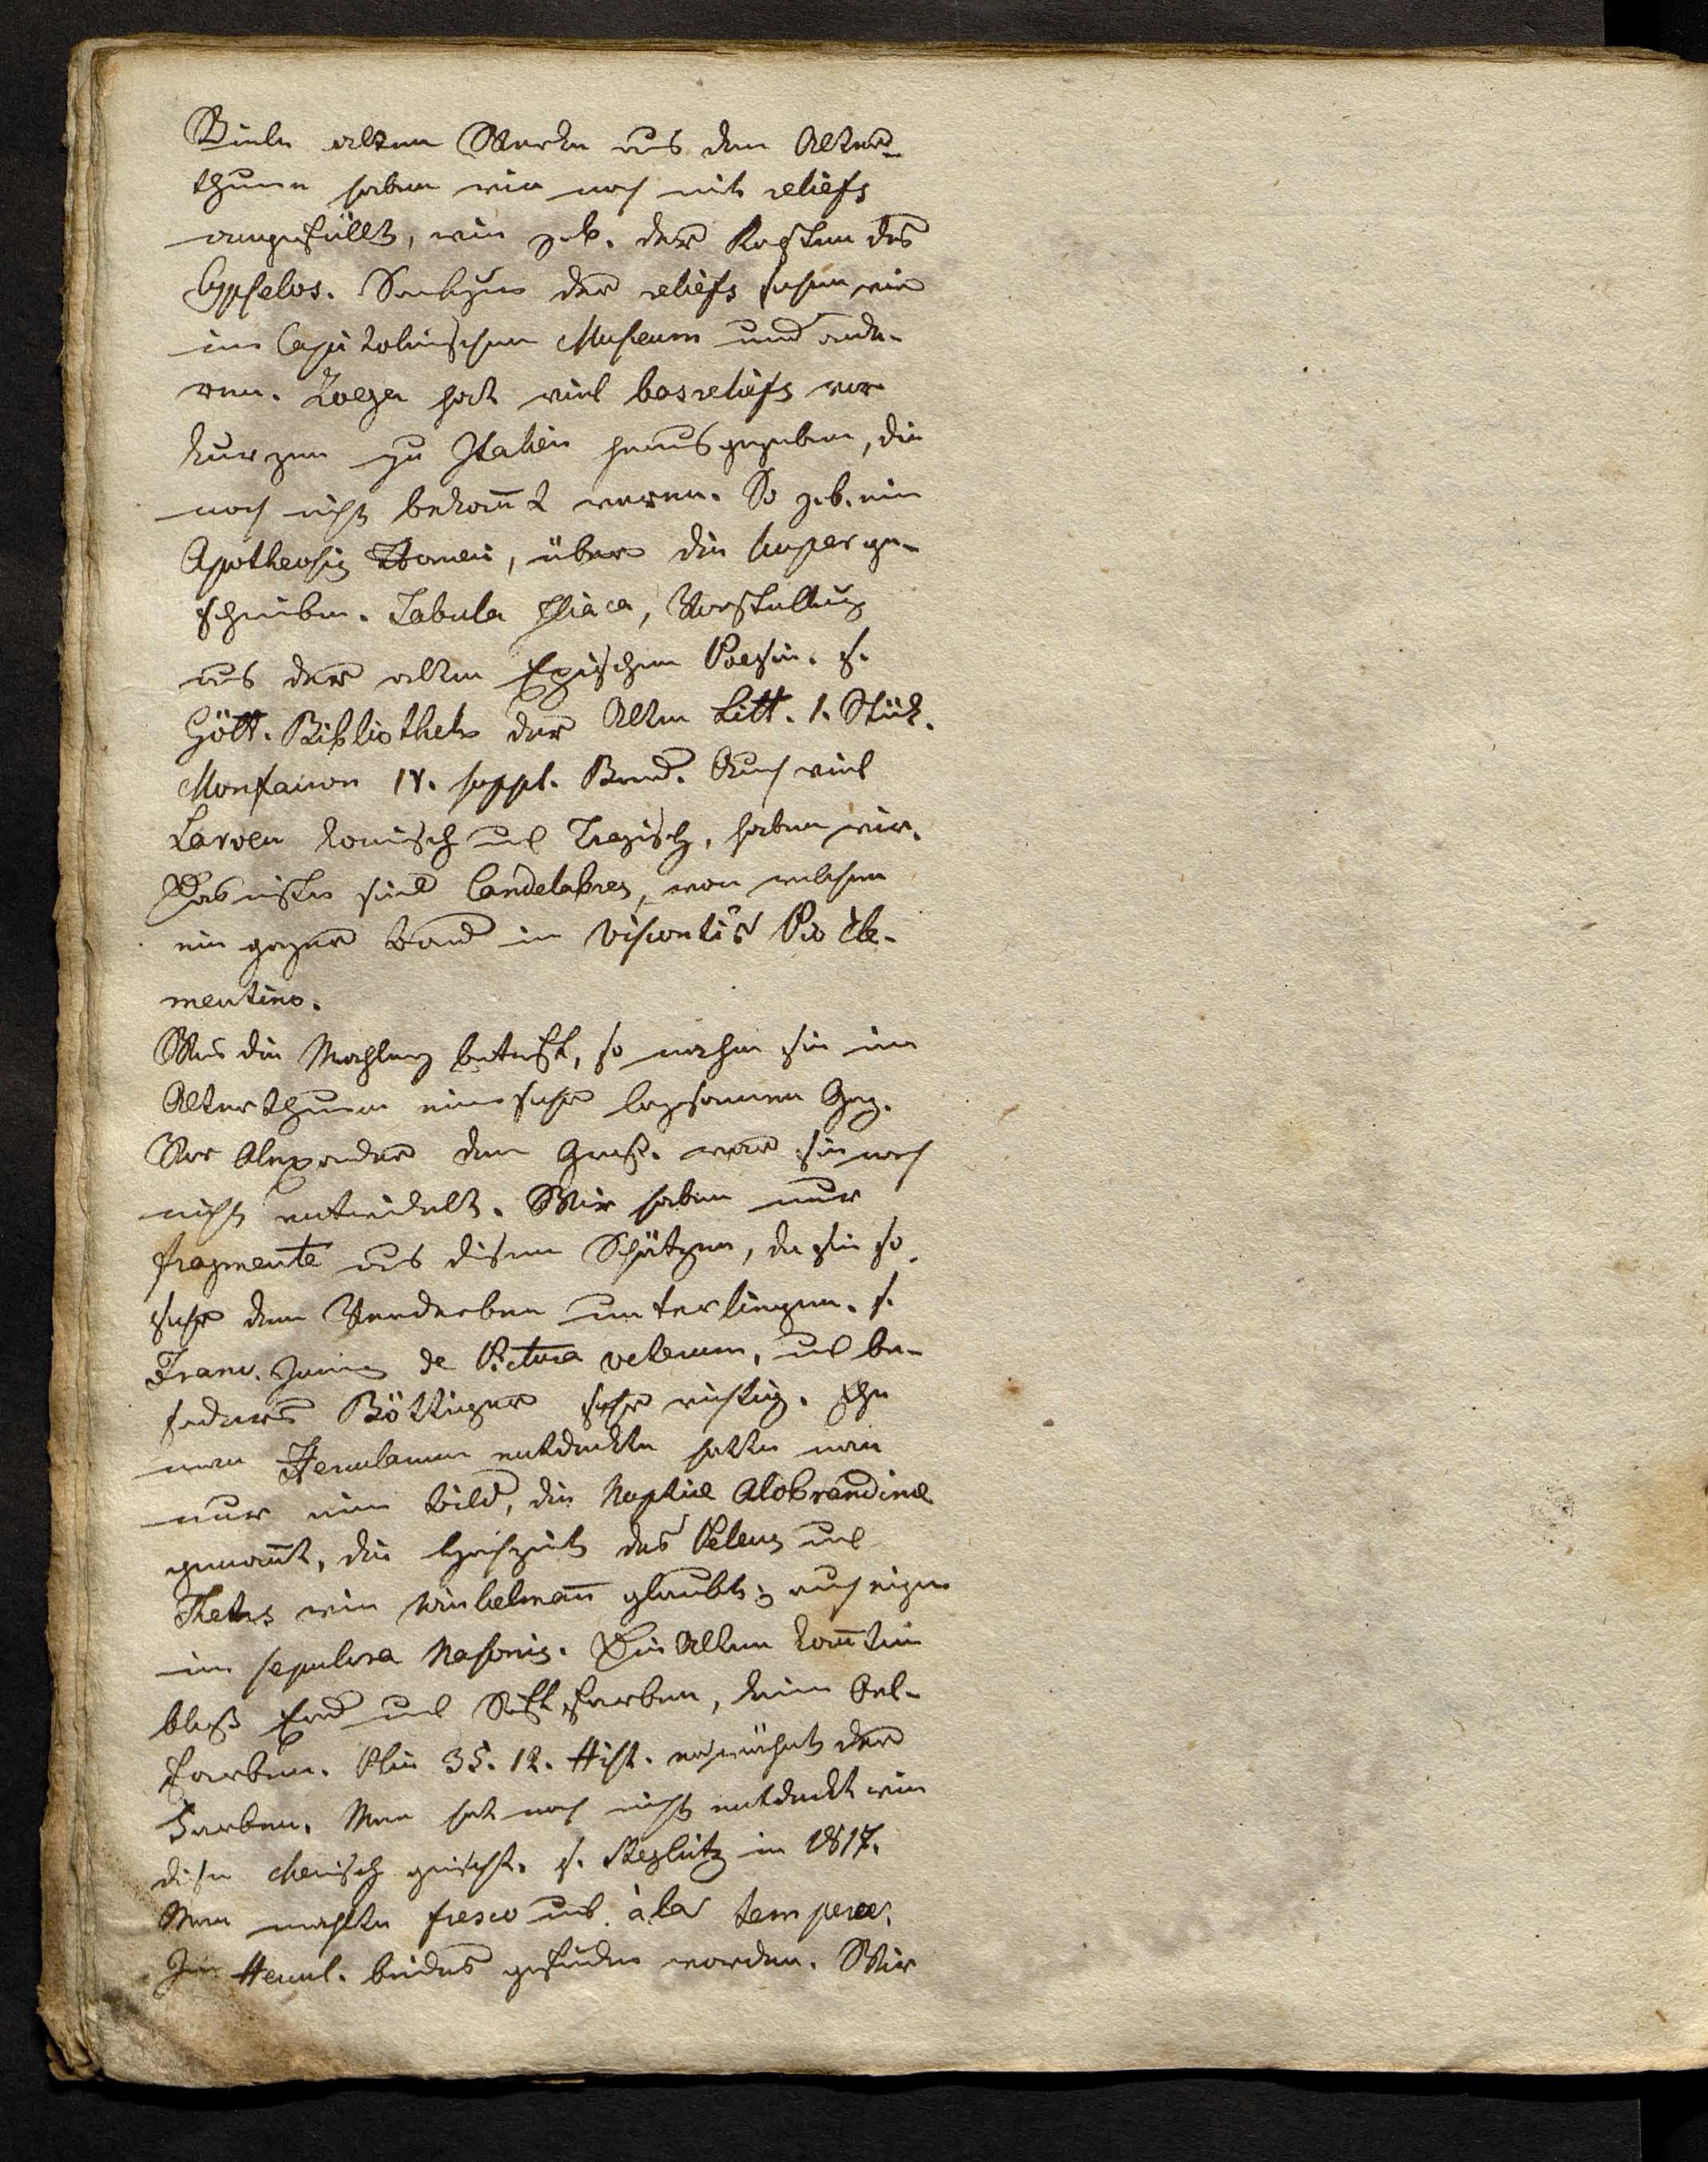 Viele alten Werke aus dem Alter-
thume haben wir noch mit reliefs
angefüllt, wie z.b. der Kasten des
Cypselos. der reliefs sehen wir
im Capitolinischen Museum und ande-
ren. Zoega hat viel basreliefs vor
kurzen zu Italien herausgegeben, die
noch nicht bekañt waren. So z.b. ein
Apotheosis Homeri, über die Cuper ge-
schrieben. Tabula Iliaca, Vorstellung
aus der alten Epischen Poesie. s.
Gött. Bibliothek der Alten Litt. 1. Stück.
Monfaucon IV. suppl. Band. Auch viel
Larven komisch und Tragisch, haben wir.
sind Candelabres, von welchen
ein ganzer Band in Visconti's Pio Cle-
mentino.
Was die Mahlerey betrifft, so nahm sie im
Alterthume einen sehr langsamen Gang.
Vor Alexander dem Groß. war sie noch
nicht entwickelt. Wir haben nur
fragmente aus diesen Schätzen, da sie so
sehr dem Verderben unterliegen. s.
Franc. Junius de Pictura veterum, und be-
sonders Böttiger sehr wichtig. Ehe
man Herculanum entdeckte hatte man
nur ein Bild, die Nuptiae Aldobrandinae
genañt, die Hochzeit des Peleus und
Thetis wie Winkelmañ glaubte; auch einige
im sepulcra Nasonis. Die Alten kañten
bloß Erd und Saftfarben, keine Oel-
farben. Plin 35. 12. Hist. erwähnt der
Farben. Man hat noch nicht entdeckt wie
diese chemisch gemischt. s. Steglitz in 1817.
Man mahlte fresco und à la tempera.
In Hercul. beides gefunden worden. Wir